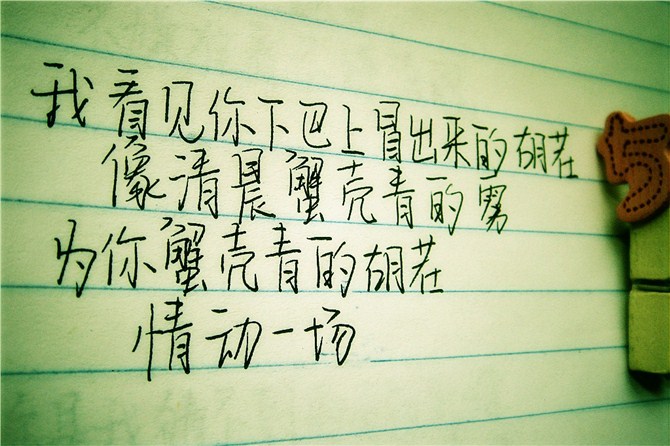 我看见你下巴上冒出来的胡茬
像清晨蟹壳青的雾
为你蟹壳青的胡茬
情动一场
5